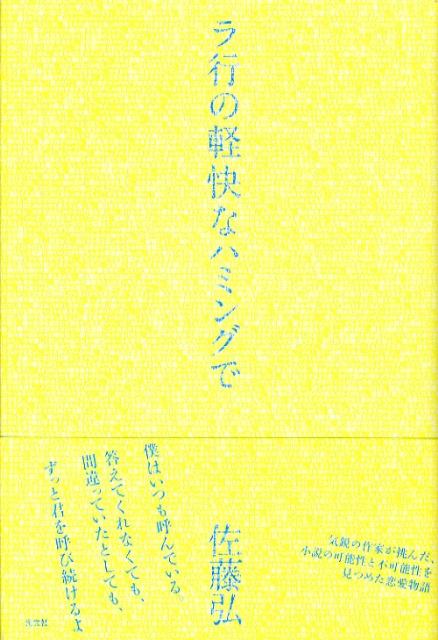 ラ行の軽快なハミングで
佐藤弘
気鋭の作家が挑んだ、
小説の可能性と不可能性を
見つめた恋愛物語
僕はいつも呼んでいる。
答えてくれなくても、
間違っていたとしても、
ずっと君を呼び続けるよ